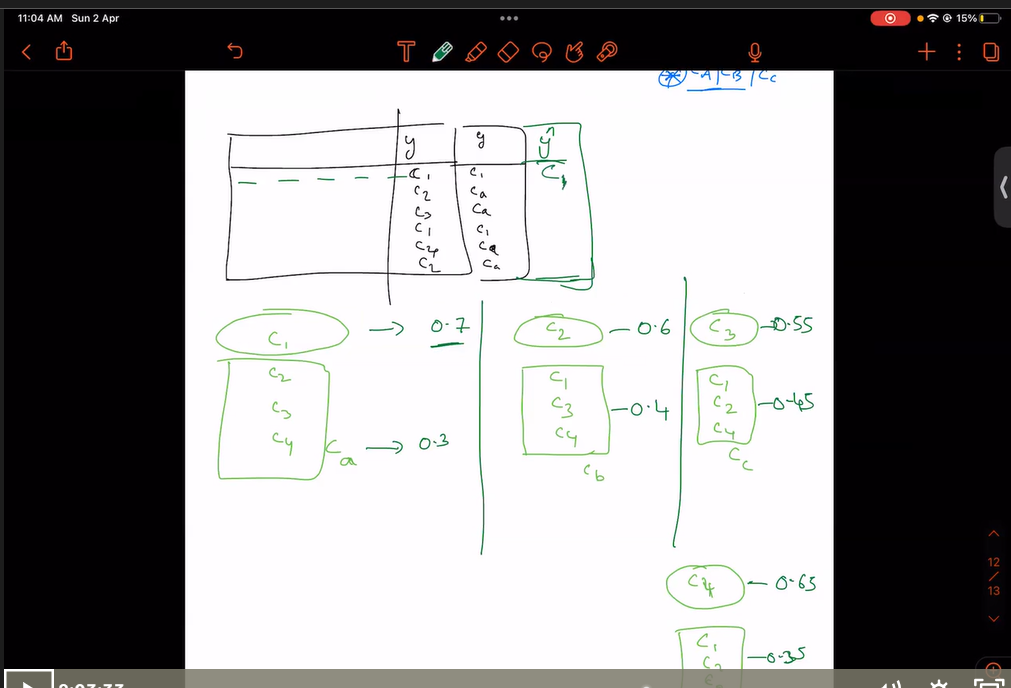 11:04 AM Sun 2 Apr
15%
CA | CB | Cc
y y ŷ
C1 C1 C1
C2 Ca
C3 Ca
C1 C1
C4 Ca
C2 Ca
C1 → 0.7
C2
C3
C4
Ca → 0.3
C2 – 0.6
C1
C3 – 0.4
C4
Cb
C3 → 0.55
C1
C2 – 0.45
C4
Cc
C4 – 0.65
C1
– 0.35
12
/
13